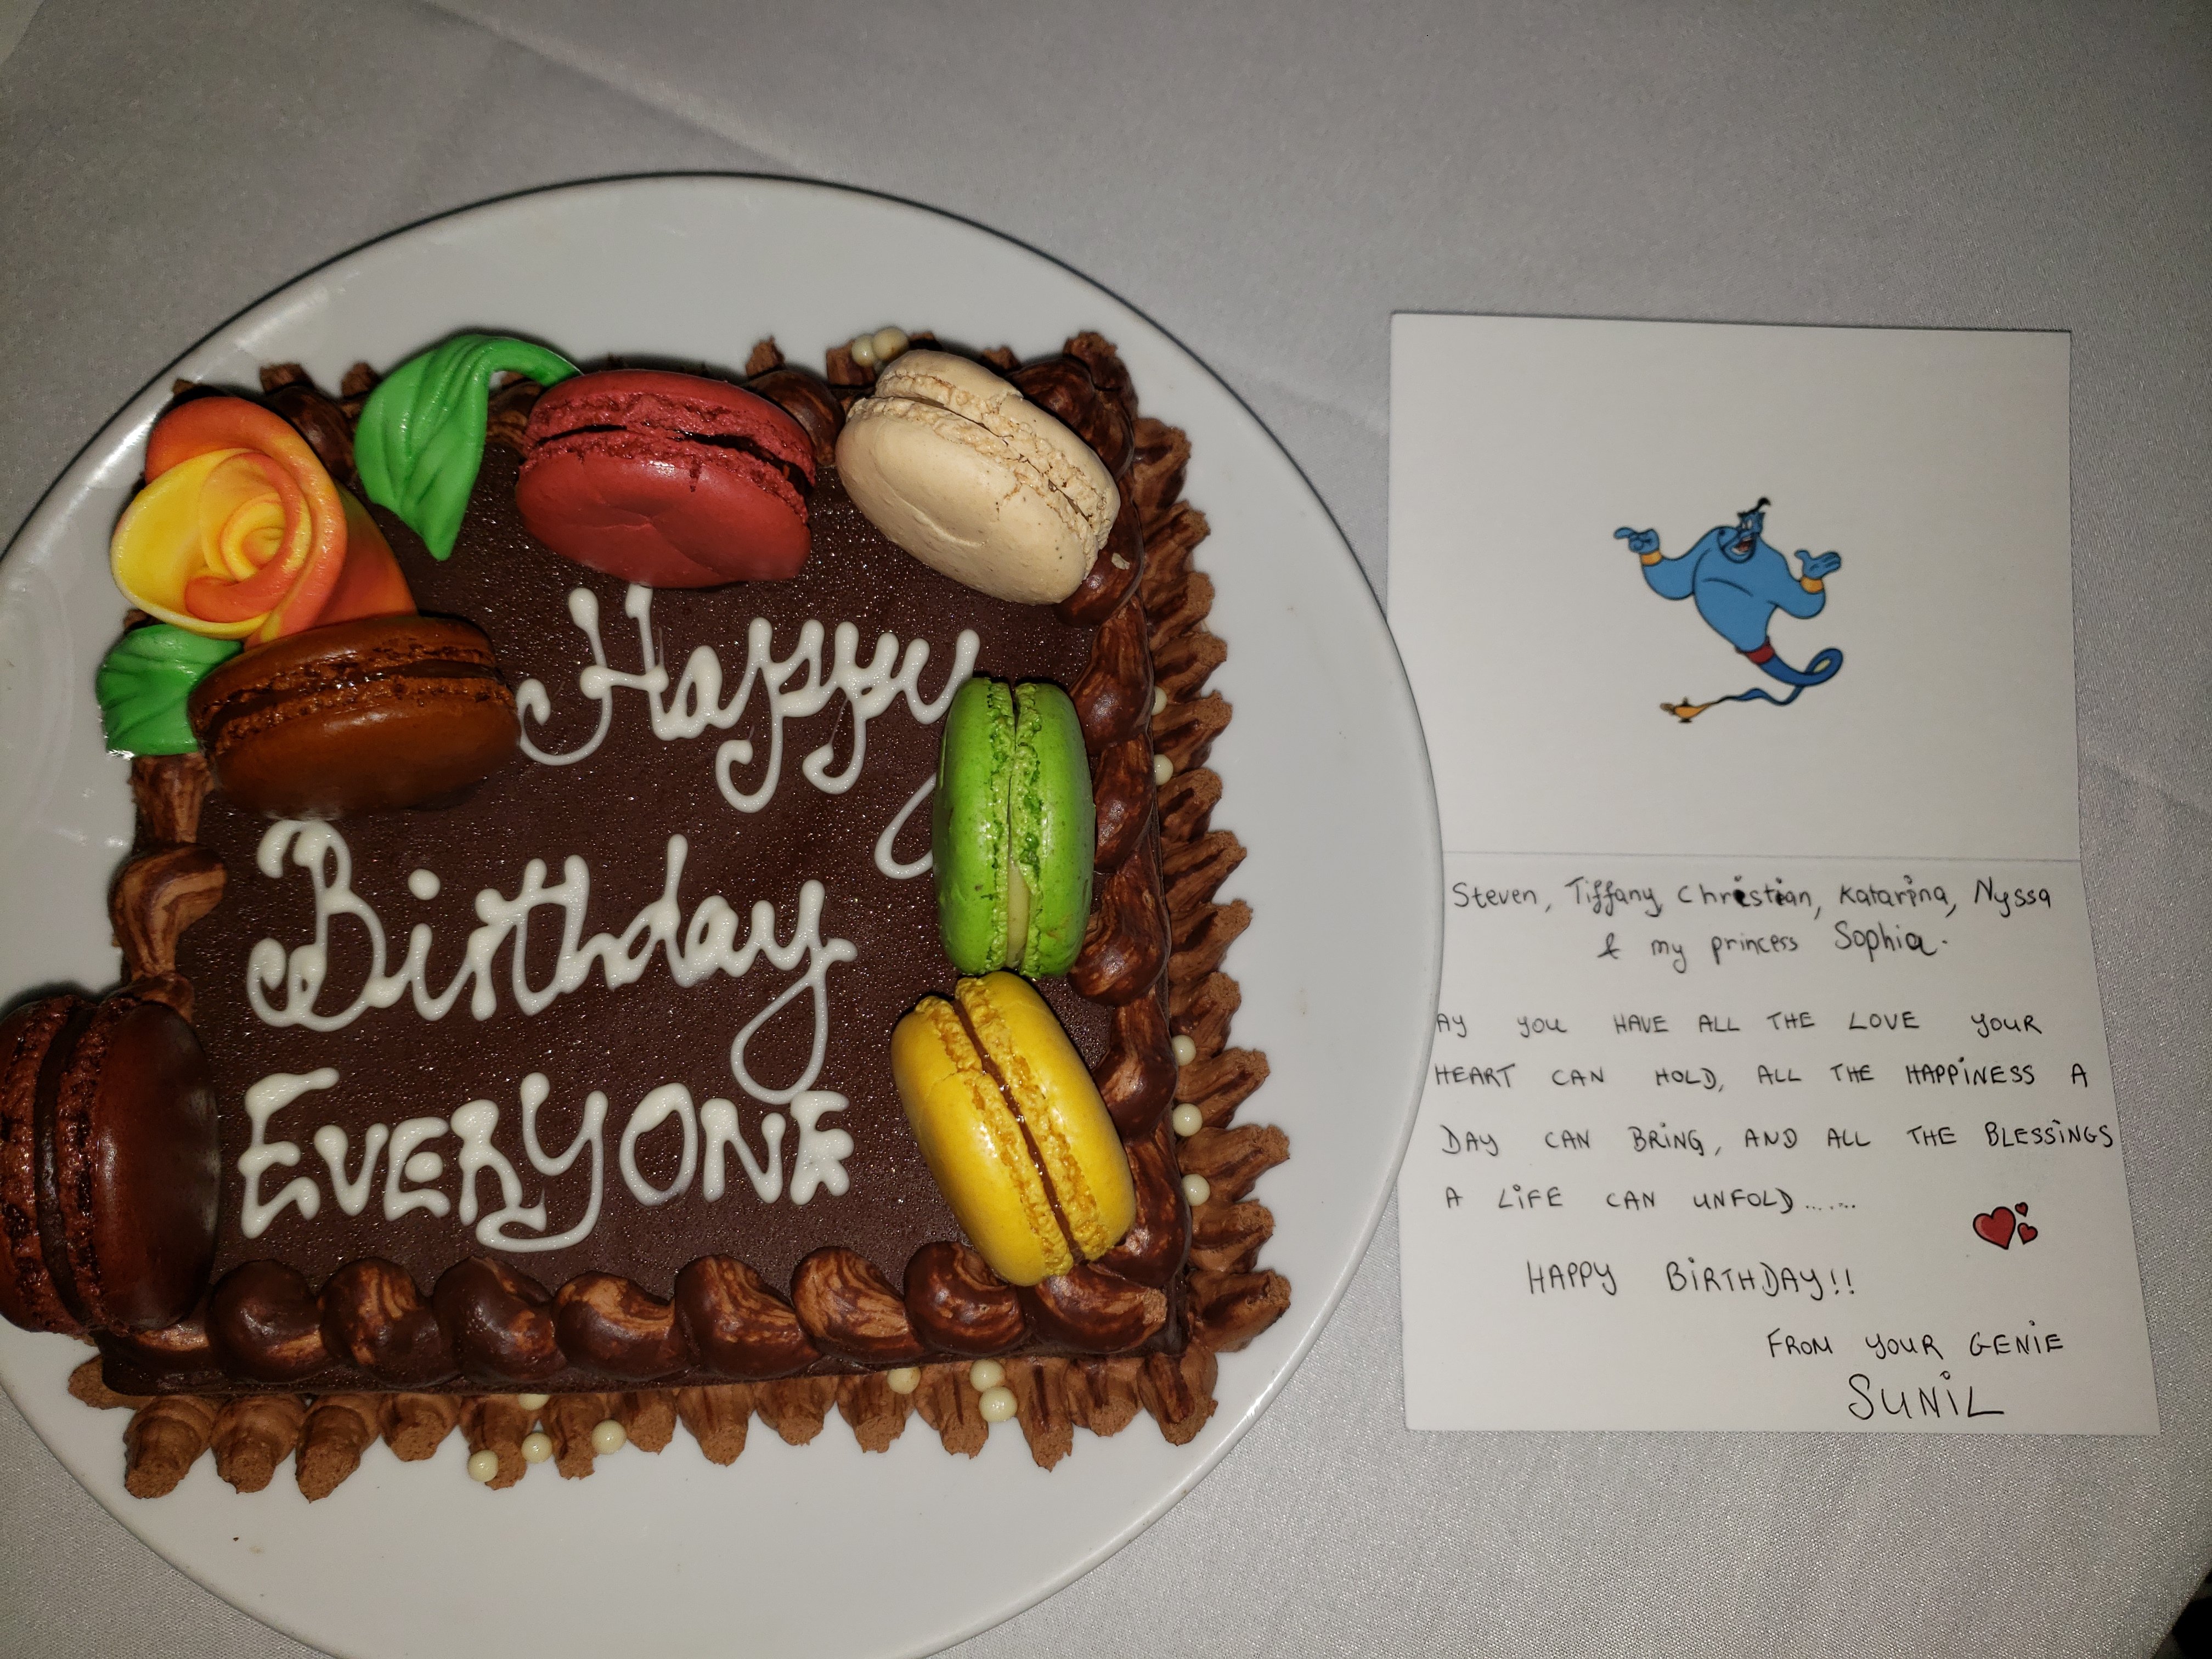 Happy
Birthday
EVERYONE
Steven, Tiffany, Christian, Katarina, Nyssa
& my princess Sophia.
AY YOU HAVE ALL THE LOVE YOUR
HEART CAN HOLD, ALL THE HAPPINESS A
DAY CAN BRING, AND ALL THE BLESSINGS
A LIFE CAN UNFOLD.......
HAPPY BIRTHDAY!!
FROM YOUR GENIE
SUNIL